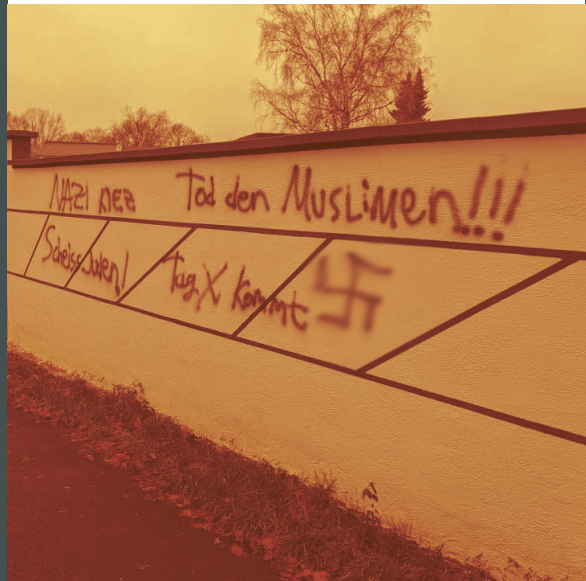 NAZI KIEZ
Tod den Muslimen!!!
Scheiss Juden!
Tag X kommt